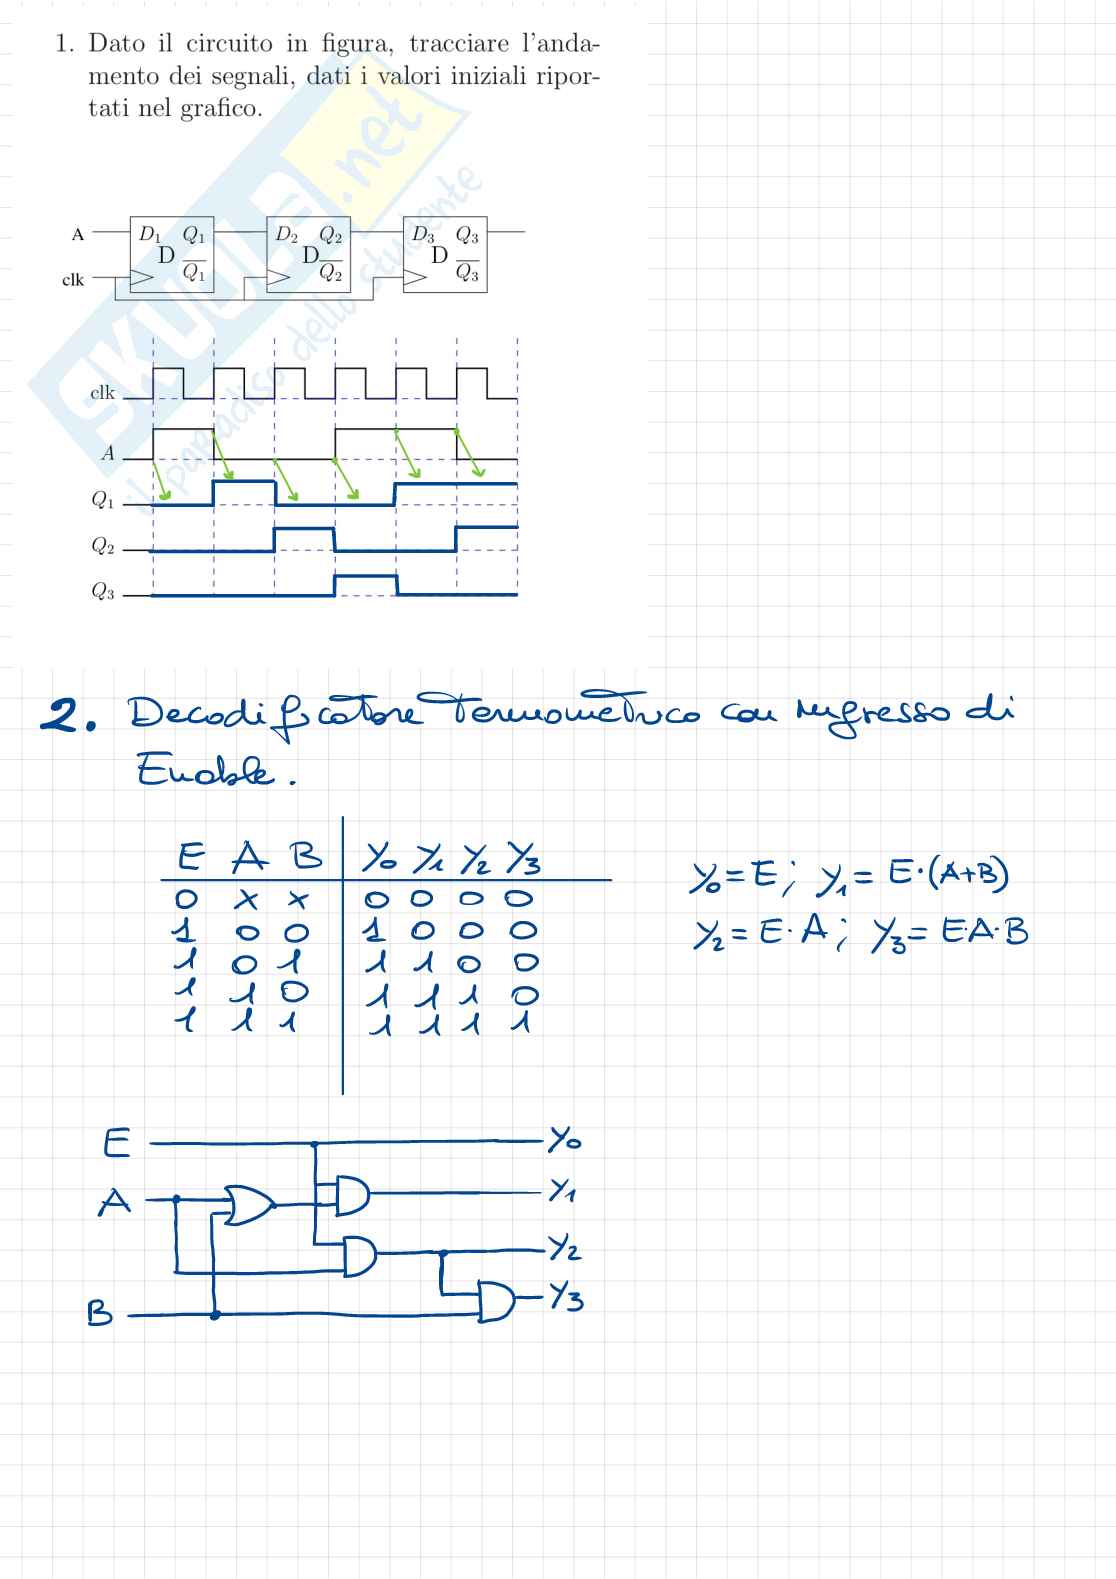 1. Dato il circuito in figura, tracciare l'anda-
mento dei segnali, dati i valori iniziali ripor-
tati nel grafico.
SKUOLA.net
il paradiso dello studente
A D₁ Q₁ D₂ Q₂ D₃ Q₃
D D D
clk Q̅₁ Q̅₂ Q̅₃
clk
A
Q₁
Q₂
Q₃
2. Decodificatore Termometrico con ingresso di
Enable.
E A B Y₀ Y₁ Y₂ Y₃
0 x x 0 0 0 0
1 0 0 1 0 0 0
1 0 1 1 1 0 0
1 1 0 1 1 1 0
1 1 1 1 1 1 1
Y₀=E; Y₁= E·(A+B)
Y₂= E·A; Y₃= E·A·B
E Y₀
A Y₁
Y₂
B Y₃